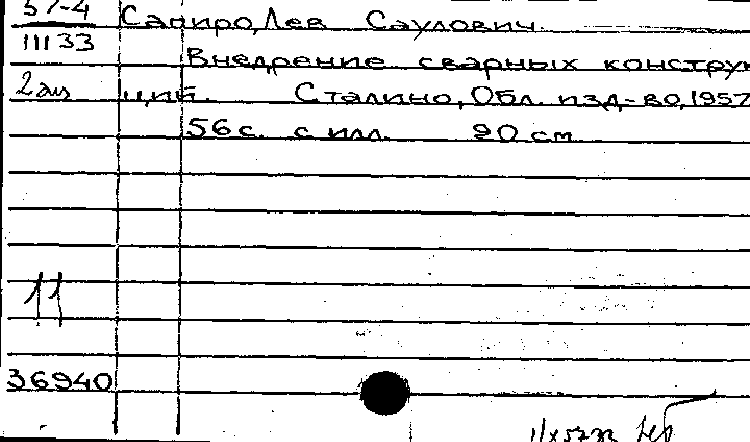 57-4 Сапиро, Лев Саулович.
11133
Внедрение сварных конструк
2 экз ций. Сталино, Обл. изд-во, 1957
56 с. с илл. 20 см
11
36940